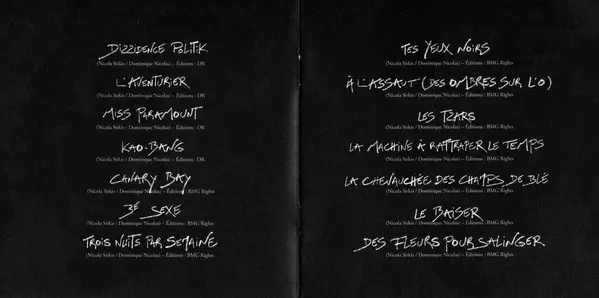 DIZZIDENCE POLITIK
(Nicola Sirkis / Dominique Nicolas) – Éditions : DR
L'AVENTURIER
(Nicola Sirkis / Dominique Nicolas) – Éditions : DR
MISS PARAMOUNT
(Nicola Sirkis / Dominique Nicolas) – Éditions : DR
KAO-BANG
(Nicola Sirkis / Dominique Nicolas) – Éditions : DR
CANARY BAY
(Nicola Sirkis / Dominique Nicolas) – Éditions : BMG Rights
3E SEXE
(Nicola Sirkis / Dominique Nicolas) – Éditions : BMG Rights
TROIS NUITS PAR SEMAINE
(Nicola Sirkis / Dominique Nicolas) – Éditions : BMG Rights
TES YEUX NOIRS
(Nicola Sirkis / Dominique Nicolas) – Éditions : BMG Rights
À L'ASSAUT (DES OMBRES SUR L'O)
(Nicola Sirkis / Dominique Nicolas) – Éditions : BMG Rights
LES TZARS
(Nicola Sirkis / Dominique Nicolas) – Éditions : BMG Rights
LA MACHINE À RATTRAPER LE TEMPS
(Nicola Sirkis / Dominique Nicolas) – Éditions : BMG Rights
LA CHEVAUCHÉE DES CHAMPS DE BLÉ
(Nicola Sirkis / Dominique Nicolas) – Éditions : BMG Rights
LE BAISER
(Nicola Sirkis / Dominique Nicolas) – Éditions : BMG Rights
DES FLEURS POUR SALINGER
(Nicola Sirkis / Dominique Nicolas) – Éditions : BMG Rights